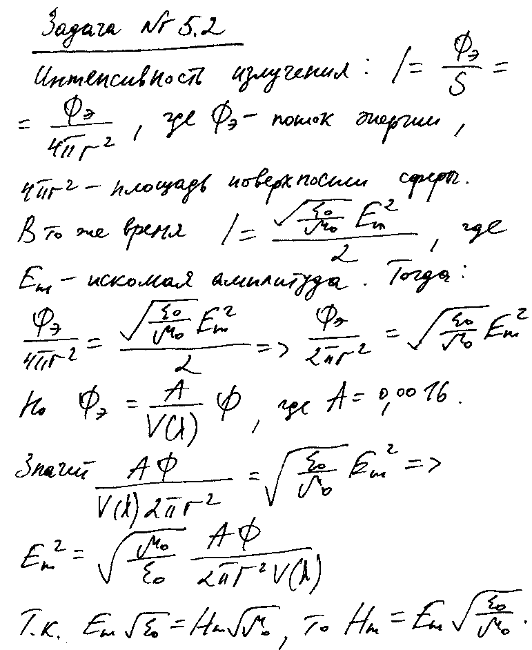 Задача № 5.2
Интенсивность излучения: I = Φэ/S =
= Φэ/4πr², где Φэ – поток энергии,
4πr² – площадь поверхности сферы.
В то же время I = √(ε₀/μ₀) Eₘ²/2, где
Eₘ – искомая амплитуда. Тогда:
Φэ/4πr² = √(ε₀/μ₀) Eₘ²/2 => Φэ/2πr² = √(ε₀/μ₀) Eₘ²
Но Φэ = A/V(λ) Φ, где A = 0,0016.
Значит AΦ/V(λ)2πr² = √(ε₀/μ₀) Eₘ² =>
Eₘ² = √(μ₀/ε₀) AΦ/2πr²V(λ)
Т.к. Eₘ√ε₀ = Hₘ√μ₀, то Hₘ = Eₘ√(ε₀/μ₀).